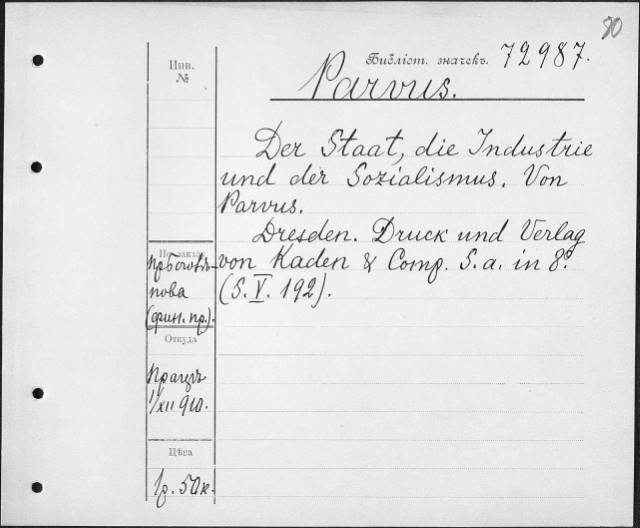 70
Библіот. значекъ. 72987.
Инв.
№
Parvus.
Der Staat, die Industrie
und der Sozialismus. Von
Parvus.
Dresden. Druck und Verlag
von Kaden & Comp. S. a. in 8º.
(S. V. 192).
пова
(фин. пр.).
Откуда
Працъ
1/XII 910.
Цѣна
1р. 50к.